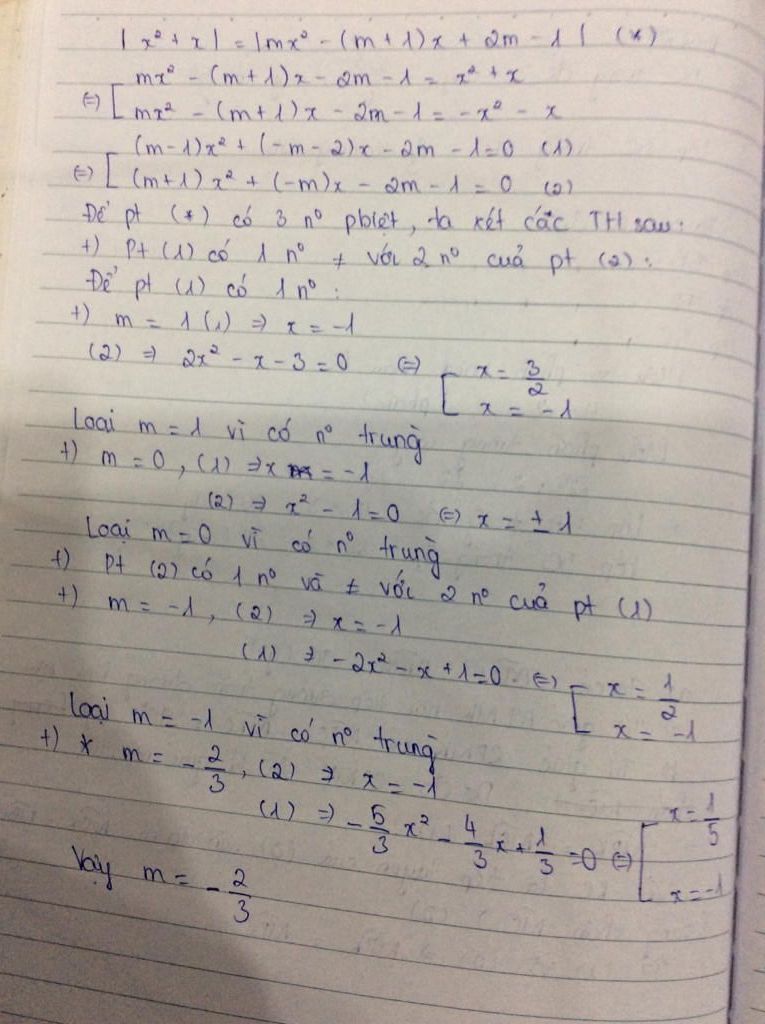 | x² + x | = | mx² - (m + 1)x + 2m - 1 | (*)
mx² - (m + 1)x - 2m - 1 = x² + x
⇔ [ mx² - (m + 1)x - 2m - 1 = -x² - x
(m-1)x² + (-m - 2)x - 2m - 1 = 0 (1)
⇔ [ (m+1)x² + (-m)x - 2m - 1 = 0 (2)
Để pt (*) có 3 n⁰ pbiệt, ta xét các TH sau:
+) Pt (1) có 1 n⁰ ≠ với 2 n⁰ của pt (2):
Để pt (1) có 1 n⁰ :
+) m = 1 (1) ⇒ x = -1
(2) ⇒ 2x² - x - 3 = 0 ⇔ [ x = 3/2
x = -1
Loại m = 1 vì có n⁰ trùng
+) m = 0, (1) ⇒ x = -1
(2) ⇒ x² - 1 = 0 ⇔ x = ± 1
Loại m = 0 vì có n⁰ trùng
+) Pt (2) có 1 n⁰ và ≠ với 2 n⁰ của pt (1)
+) m = -1, (2) ⇒ x = -1
(1) ⇒ -2x² - x + 1 = 0 ⇔ [ x = 1/2
x = -1
Loại m = -1 vì có n⁰ trùng
+) * m = -2/3, (2) ⇒ x = -1
(1) ⇒ -5/3 x² - 4/3 x + 1/3 = 0 ⇔ [ x = 1/5
x = -1
Vậy m = -2/3